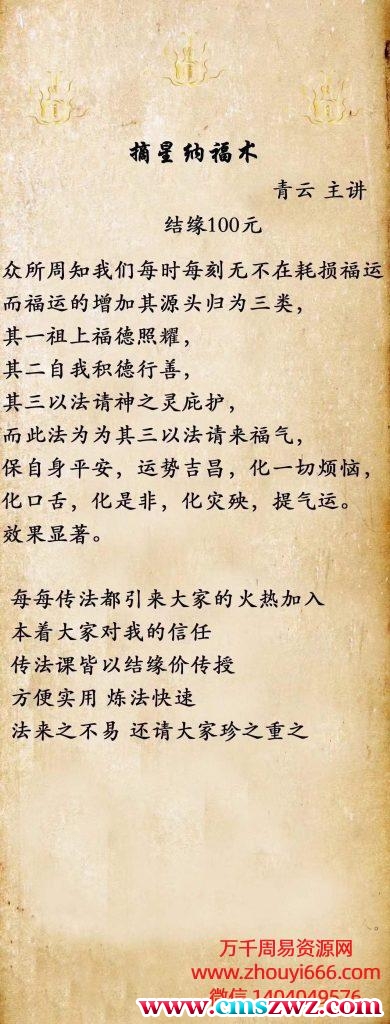 摘星纳福术
青云 主讲
结缘100元
众所周知我们每时每刻无不在耗损福运
而福运的增加其源头归为三类，
其一祖上福德照耀，
其二自我积德行善，
其三以法请神之灵庇护，
而此法为为其三以法请来福气，
保自身平安，运势吉昌，化一切烦恼，
化口舌，化是非，化灾殃，提气运。
效果显著。
每每传法都引来大家的火热加入
本着大家对我的信任
传法课皆以结缘价传授
方便实用 炼法快速
法来之不易 还请大家珍之重之
万千周易资源网
www.zhouyi666.com
微信 1404049576
www.cmszwz.com